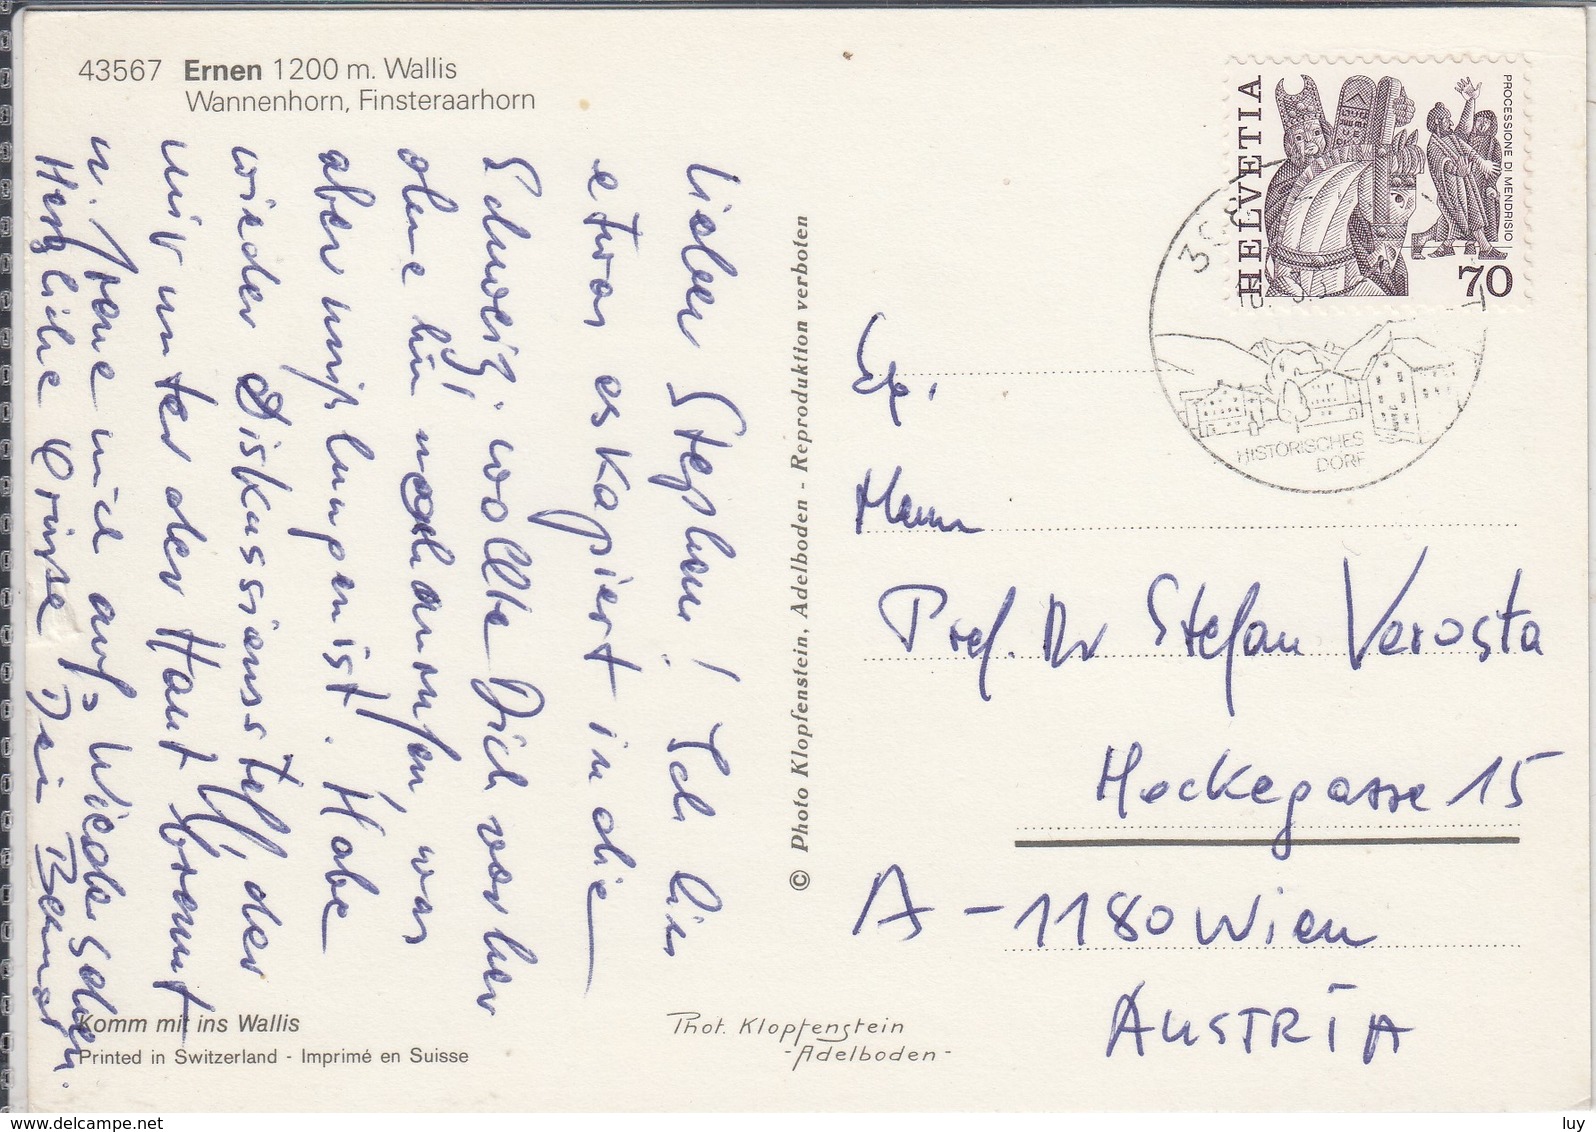 43567 Ernen 1200 m. Wallis
Wannenhorn, Finsteraarhorn
HELVETIA
PROCESSIONE DI MENDRISIO
70
HISTORISCHES
DORF
Lieber Stephan! Ich bin
etwas eskapiert in die
Schweiz, wollte Dich vorher
ohne hin noch anrufen, was
aber mißlungen ist. Habe
wieder Diskussionsstoff, der
mir unter der Haut brennt
u. freue mich auf's Wiedersehen.
Herzliche Grüße Dein
© Photo Klopfenstein, Adelboden - Reproduktion verboten
Herrn
Prof. Dr Stefan Verosta
Hockegasse 15
A-1180 Wien
AUSTRIA
Komm mit ins Wallis
Printed in Switzerland - Imprimé en Suisse
Phot. Klopfenstein
-Adelboden-
www.delcampe.net
luy